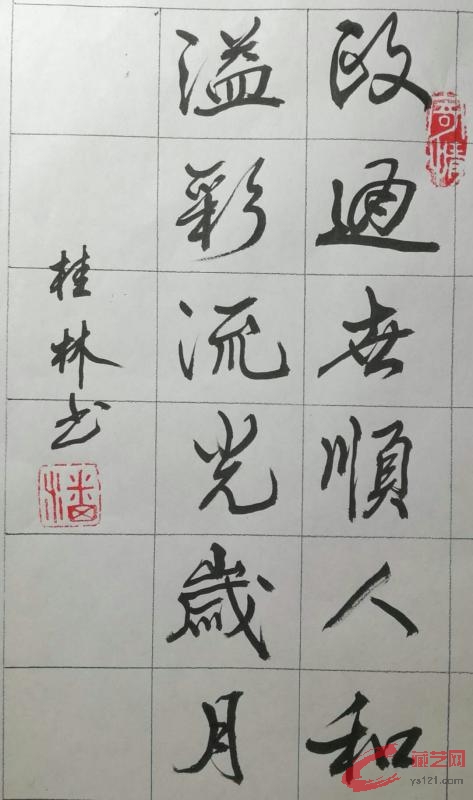 政通世順人和
溢彩流光歲月
桂林书
寄情
潘
藏艺网
ys121.com